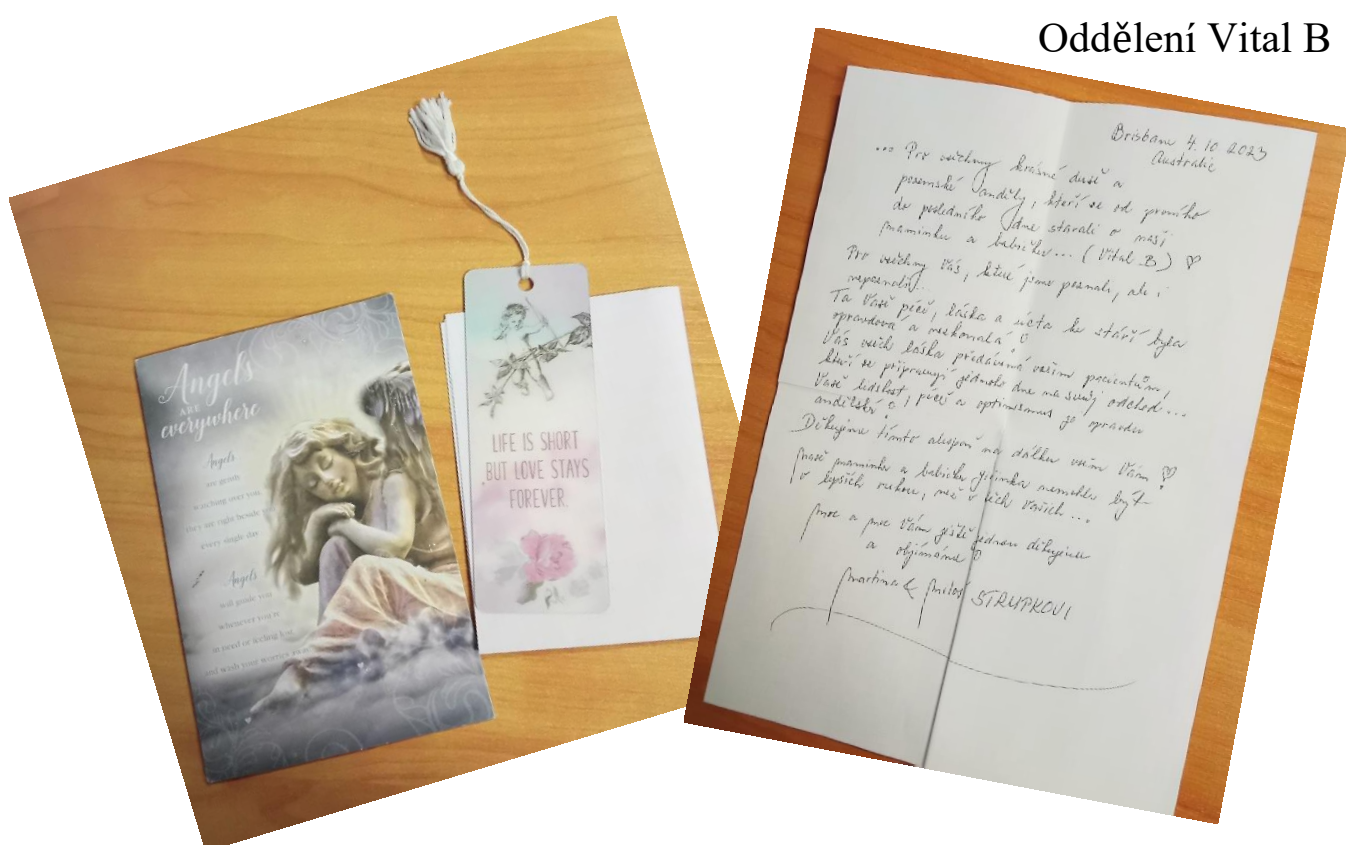 Oddělení Vital B
Angels
ARE
everywhere
Angels
are gently
watching over you,
they sit right beside
every single day
Angels
will guide you
whenever you're
in need or feeling lost
and wash your worries away
LIFE IS SHORT
BUT LOVE STAYS
FOREVER.
Brisbane 4. 10 2023
Australie
... Pro všechny krásné duše a
pozemské anděly, kteří se od prvního
do posledního dne starali o naši
maminku a babičku... (Vital B) ♡
Pro všechny Vás, které jsme poznali, ale i
nepoznali...
Ta Vaše péče, láska a úcta ke stáří byla
opravdová a nezkomalá
Vás všech láska předávána vašim pacientům,
kteří se připravují jednoho dne na svůj odchod...
Vaše lidskost, péče a optimismus je opravdu
andělský
Děkujeme tímto alespoň na dálku všem Vám ♡
Naše maminka a babička nemohla být
v lepších rukou, než v těch Vašich...
Moc a moc Vám ještě jednou děkujeme
a objímáme ♡
Martina & Miloš STRUPKOVI